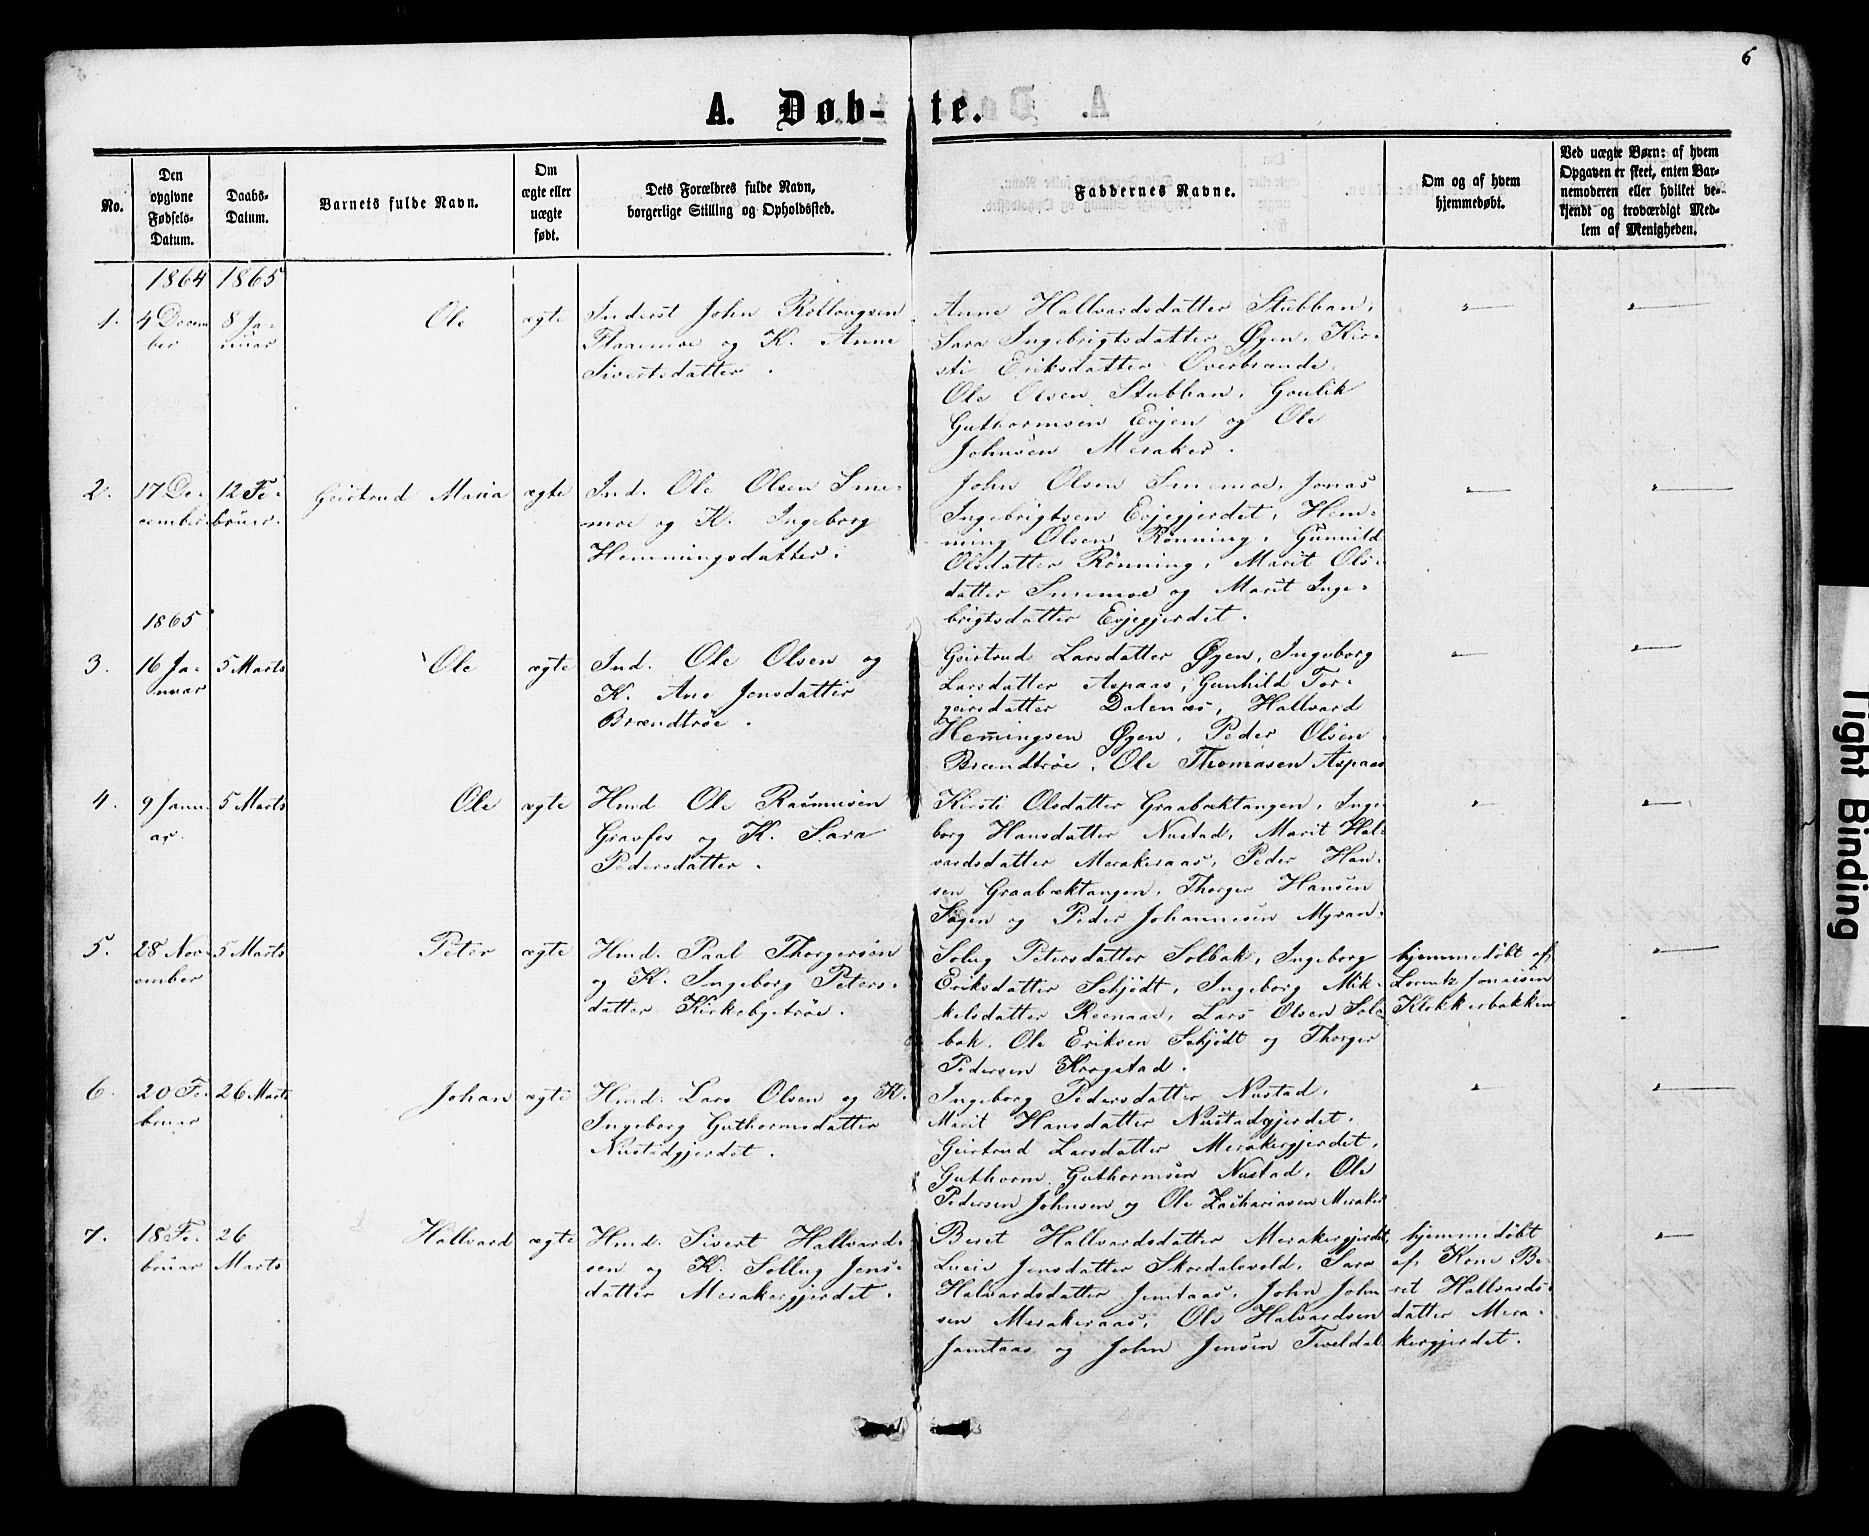 6
A. Døb-te.
No.
Den opgivne Fødsels-Datum.
Daabs-Datum.
Barnets fulde Navn.
Om ægte eller uægte født.
Dets Forældres fulde Navn, borgerlige Stilling og Opholdssted.
Faddernes Navne.
Om og af hvem hjemmedøbt.
Ved uægte Børn: af hvem Opgaven er skeet, enten Barnemoderen eller hvilket bekjendt og troværdigt Medlem af Menigheden.
1864 1865
1. 4 Decem- 8 Ja- Ole ægte Inderst John Rollougsen
ber nuar Flaamoe og K. Anne
Sivertsdatter.
Anne Hallvardsdatter Stubban,
Sara Ingebrigtsdatter Øyen, Kir-
sti Eriksdatter Overbrande,
Ole Olsen Stubban, Goulik
Guthormsen Evjen og Ole
Johnsen Meraker.
2. 17 De- 12 Fe- Geirtrud Maria ægte Ind. Ole Olsen Sme-
cember bruar. moe og K. Ingeborg
Hemmingsdatter.
John Olsen Smemoe, Jonas
Ingebrigtsen Evjegjerdet, Hem-
ming Olsen Rønning, Gunnild
Olsdatter Rønning, Marit Ols-
datter Smemoe og Marit Inge-
brigtsdatter Evjegjerdet.
1865
3. 16 Ja- 5 Marts Ole ægte Ind. Ole Olsen og
nuar K. Ane Jonsdatter
Brændtrøe.
Geirtrud Larsdatter Øyen, Ingeborg
Larsdatter Aspaas, Gunhild Tor-
geirsdatter Dalenæs, Hallvard
Hemingsen Øyen, Peder Olsen
Brændtrøe, Ole Thomasen Aspaas
4. 9 Janu- 5 Marts Ole ægte Hmd. Ole Rasmusen
ar. Gravfos og K. Sara
Pedersdatter.
Kirsti Olsdatter Graabæktangen, Inge-
borg Hansdatter Nustad, Marit Hal-
vardsdatter Merakeraas, Peder Han-
sen Graabæktangen, Thorger Hansen
Sagen og Peder Johannesen Myran.
5. 28 Nov- 5 Marts Peter ægte Hmd. Paal Thorgersen
ember og K. Ingeborg Peters-
datter Kirkebytrøe.
Solug Petersdatter Solbak, Ingeborg
Eriksdatter Schjødt, Ingeborg Mik-
kelsdatter Reenaas, Lars Olsen Sol-
bak, Ole Eriksen Schjødt og Thorger
Pedersen Krogstad.
hjemmedøbt af
Lorentz Jonassen
Klokkerbakken
6. 20 Fe- 26 Marts Johan ægte Hmd. Lars Olsen og K.
bruar Ingeborg Guthormsdatter
Nustadgjerdet.
Ingeborg Pedersdatter Nustad,
Marit Hansdatter Nustadgjerdet,
Geirtrud Larsdatter Merakergjerdet,
Guthorm Guthormsen Nustad, Ole
Pedersen Johnsen og Ole Zachariasen Meraker
7. 18 Fe- 26 Hallvard ægte Hmd. Sivert Hallvard-
bruar Marts sen og K. Sollug Jens-
datter Merakergjerdet.
Beret Hallvardsdatter Merakergjerdet,
Lucie Jensdatter Skordalsvold, Sara
Halvardsdatter Jemtaas, John John-
sen Merakeraas, Ole Halvardsen
Jamtaas og John Jensen Tveldal
hjemmedøbt
af Kone Be-
ret Hallvards-
datter Mera-
kergjerdet.
Tight Binding